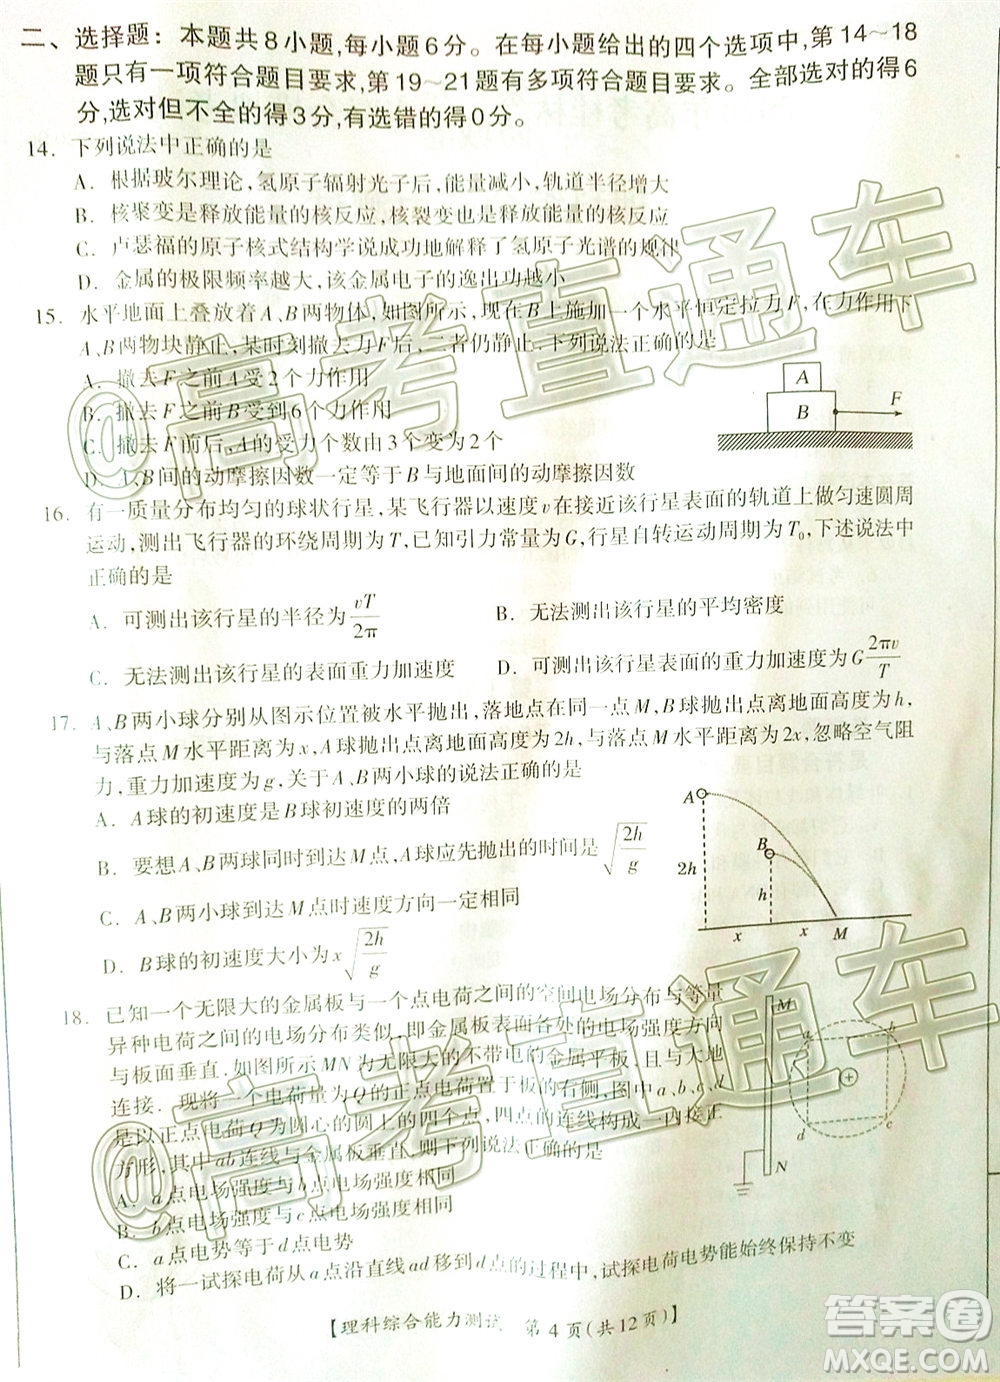 二、选择题：本题共8小题,每小题6分。在每小题给出的四个选项中,第14～18
题只有一项符合题目要求,第19～21题有多项符合题目要求。全部选对的得6
分,选对但不全的得3分,有选错的得0分。
14．下列说法中正确的是
A．根据玻尔理论,氢原子辐射光子后,能量减小,轨道半径增大
B．核聚变是释放能量的核反应,核裂变也是释放能量的核反应
C．卢瑟福的原子核式结构学说成功地解释了氢原子光谱的规律
D．金属的极限频率越大,该金属电子的逸出功越小
15．水平地面上叠放着A、B两物体,如图所示,现在B上施加一水平恒定拉力F,在力作用下
A、B两物块静止,某时刻撤去力F后,二者仍静止.下列说法正确的是
A．撤去F之前A受2个力作用
B．撤去F之前B受到6个力作用
C．撤去F前后,A的受力个数由3个变为2个
D．A、B间的动摩擦因数一定等于B与地面间的动摩擦因数
A
B
F
16．有一质量分布均匀的球状行星,某飞行器以速度v在接近该行星表面的轨道上做匀速圆周
运动,测出飞行器的环绕周期为T,已知引力常量为G,行星自转运动周期为T₀,下述说法中
正确的是
A．可测出该行星的半径为vT/2π
B．无法测出该行星的平均密度
C．无法测出该行星的表面重力加速度
D．可测出该行星的表面的重力加速度为G2πv/T
17．A、B两小球分别从图示位置被水平抛出,落地点在同一点M,B球抛出点离地面高度为h,
与落点M水平距离为x,A球抛出点离地面高度为2h,与落点M水平距离为2x,忽略空气阻
力,重力加速度为g,关于A、B两小球的说法正确的是
A．A球的初速度是B球初速度的两倍
B．要想A、B两球同时到达M点,A球应先抛出的时间是√(2h/g)
C．A、B两小球到达M点时速度方向一定相同
D．B球的初速度大小为x√(2h/g)
A
B
2h
h
x
x
M
18．已知一个无限大的金属板与一个点电荷之间的空间电场分布与等量
异种电荷之间的电场分布类似,即金属板表面各处的电场强度方向
与板面垂直.如图所示MN为无限大的不带电的金属平板,且与大地
连接．现将一个电荷量为Q的正点电荷置于板的右侧,图中a、b、c、d
是以正点电荷Q为圆心的圆上的四个点,四点的连线构成一内接正
方形,其中ab连线与金属板垂直,则下列说法正确的是
A．a点电场强度与b点电场强度相同
B．b点电场强度与c点电场强度相同
C．a点电势等于d点电势
D．将一试探电荷从a点沿直线ad移到d点的过程中,试探电荷电势能始终保持不变
M
N
a
b
c
d
+
【理科综合能力测试 第4页(共12页)】
@高考直通车
@高考直通车
答案圈
MXQE.COM